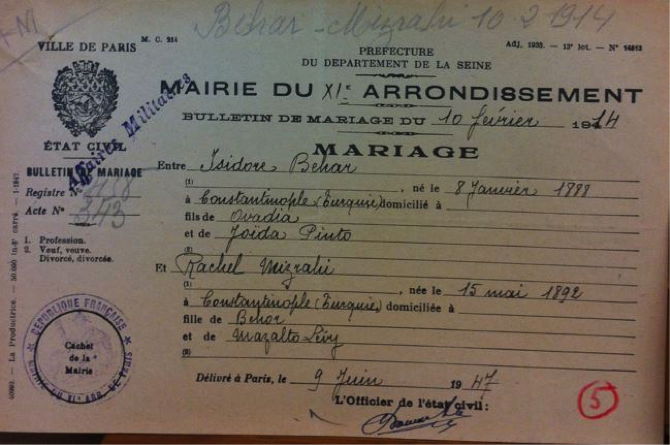 Behar - Mizrahi 10 2 1914
VILLE DE PARIS
M. C. 214
PREFECTURE
DU DEPARTEMENT DE LA SEINE
Adj. 1933. — 13e lot. — N° 14813
MAIRIE DU XIe ARRONDISSEMENT
Affaires Militaires
BULLETIN DE MARIAGE DU 10 février 1914
ÉTAT CIVIL
MARIAGE
BULLETIN DE MARIAGE
Registre N°
Acte N° 343
1. Profession.
2. Veuf, veuve.
Divorcé, divorcée.
Entre Isidore Behar
(1) , né le 8 Janvier 1888
à Constantinople (Turquie) domicilié à
fils de Ovadia
et de Joïda Pinto
(2)
Et Rachel Mizrahi
(1) , née le 15 mai 1892
à Constantinople (Turquie) domiciliée à
fille de Behor
et de Mazalto Lévy
(2)
RÉPUBLIQUE FRANÇAISE
Cachet
de la
Mairie
MAIRIE DU XIe ARR. DE PARIS
Délivré à Paris, le 9 Juin 1947
L'Officier de l'état civil :
5
La Productrice.